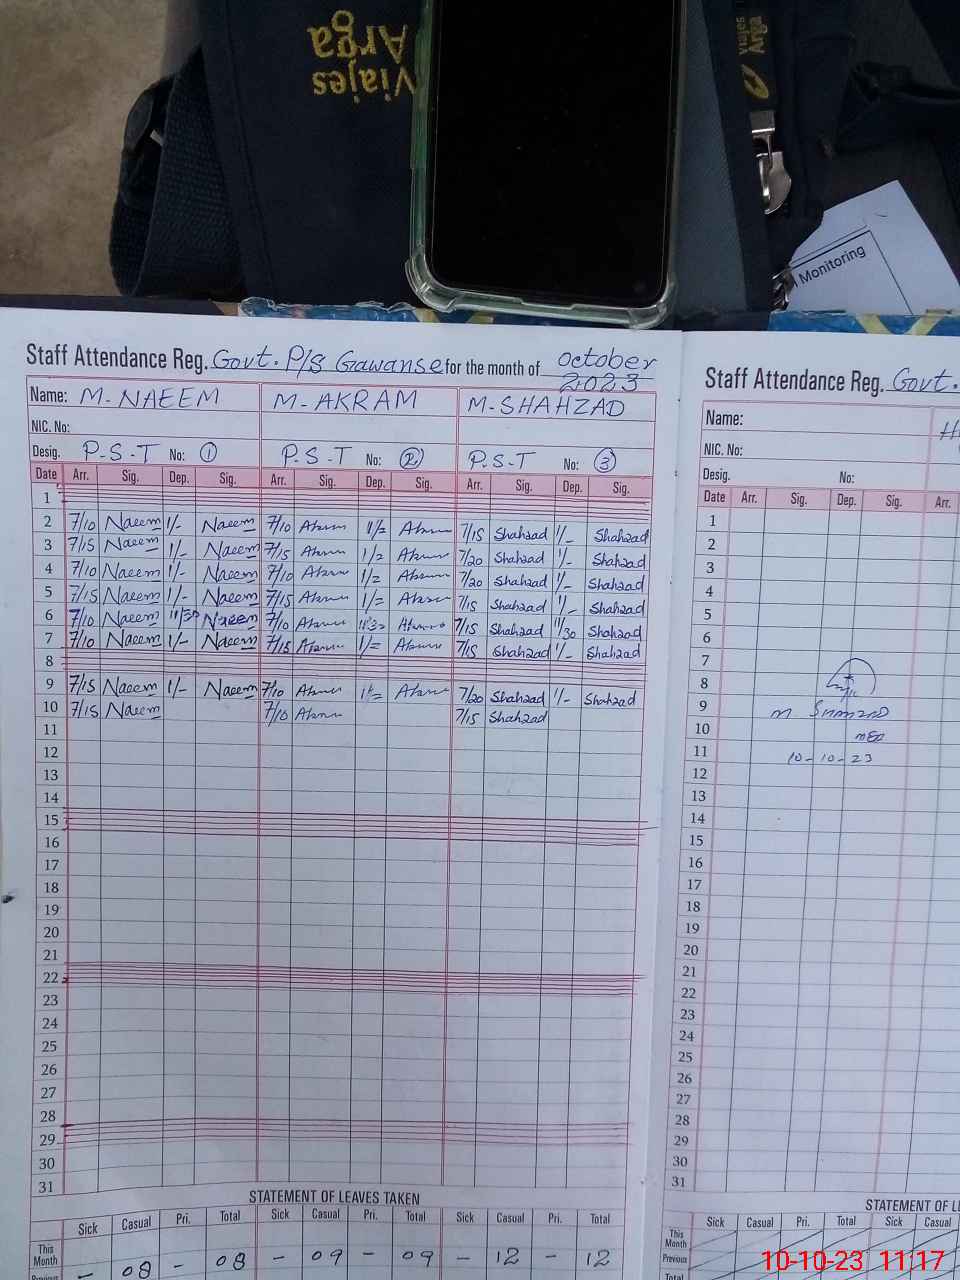 Viajes
Arga
Viajes
Arga
Monitoring
Staff Attendance Reg. Govt. P/S Gawanse for the month of October 2023
Name: M-NAEEM M-AKRAM M-SHAHZAD
NIC. No:
Desig. P.S.T No: 1 P.S.T No: 2 P.S.T No: 3
Date Arr. Sig. Dep. Sig. Arr. Sig. Dep. Sig. Arr. Sig. Dep. Sig.
1
2 7/10 Naeem 1/- Naeem 7/10 Akram 1/= Akram 7/15 Shahzad 1/- Shahzad
3 7/15 Naeem 1/- Naeem 7/15 Akram 1/= Akram 7/20 Shahzad 1/- Shahzad
4 7/10 Naeem 1/- Naeem 7/10 Akram 1/= Akram 7/20 Shahzad 1/- Shahzad
5 7/15 Naeem 1/- Naeem 7/15 Akram 1/= Akram 7/15 Shahzad 1/- Shahzad
6 7/10 Naeem 11/30 Naeem 7/10 Akram 11/30 Akram 7/15 Shahzad 11/30 Shahzad
7 7/10 Naeem 1/- Naeem 7/15 Akram 1/= Akram 7/15 Shahzad 1/- Shahzad
8
9 7/15 Naeem 1/- Naeem 7/10 Akram 1/= Akram 7/20 Shahzad 1/- Shahzad
10 7/15 Naeem 7/10 Akram 7/15 Shahzad
11
12
13
14
15
16
17
18
19
20
21
22
23
24
25
26
27
28
29
30
31
STATEMENT OF LEAVES TAKEN
Sick Casual Pri. Total Sick Casual Pri. Total Sick Casual Pri. Total
This Month - 08 - 08 - 09 - 09 - 12 - 12
Previous
Staff Attendance Reg. Govt.
Name: H
NIC. No:
Desig. No:
Date Arr. Sig. Dep. Sig. Arr.
1
2
3
4
5
6
7
8
9
10
11
12
13
14
15
16
17
18
19
20
21
22
23
24
25
26
27
28
29
30
31
M
10-10-23
STATEMENT OF L
Sick Casual Pri. Total Sick Casual
This Month
Previous
Total
10-10-23 11:17